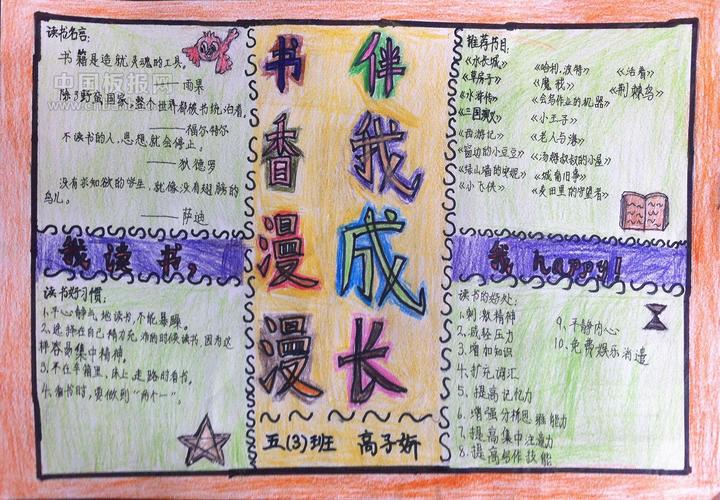 读书名言:
书籍是造就灵魂的工具。
——雨果
除了野蛮国家,整个世界都被书统治着。
——福尔特尔
不读书的人,思想就会停止。
——狄德罗
没有求知欲的学生,就像没有翅膀的
鸟儿。
——萨迪
中国板报网
我读书,
读书好习惯:
1、平心静气地读书,不能暴躁。
2、选择在自己精力充沛的时候读书,因为这
样容易集中精神。
3、不在车箱里、床上、走路时看书。
4、看书时,要做到“两个一”。
书香漫漫
伴我成长
五(3)班 高子妍
推荐书目:
《水长城》
《草房子》
《水浒传》
《三国演义》
《西游记》
《窗边的小豆豆》
《绿山墙的安妮》
《小飞侠》
《哈利,波特》
《魔戒》
《会写作业的机器》
《小王子》
《老人与海》
《汤姆叔叔的小屋》
《城南旧事》
《麦田里的守望者》
《活着》
《荆棘鸟》
我 happy!
读书的好处:
1、刺激精神
2、减轻压力
3、增加知识
4、扩充词汇
5、提高记忆力
6、增强分析思维能力
7、提高集中注意力
8、提高写作技能
9、平静内心
10、免费娱乐消遣